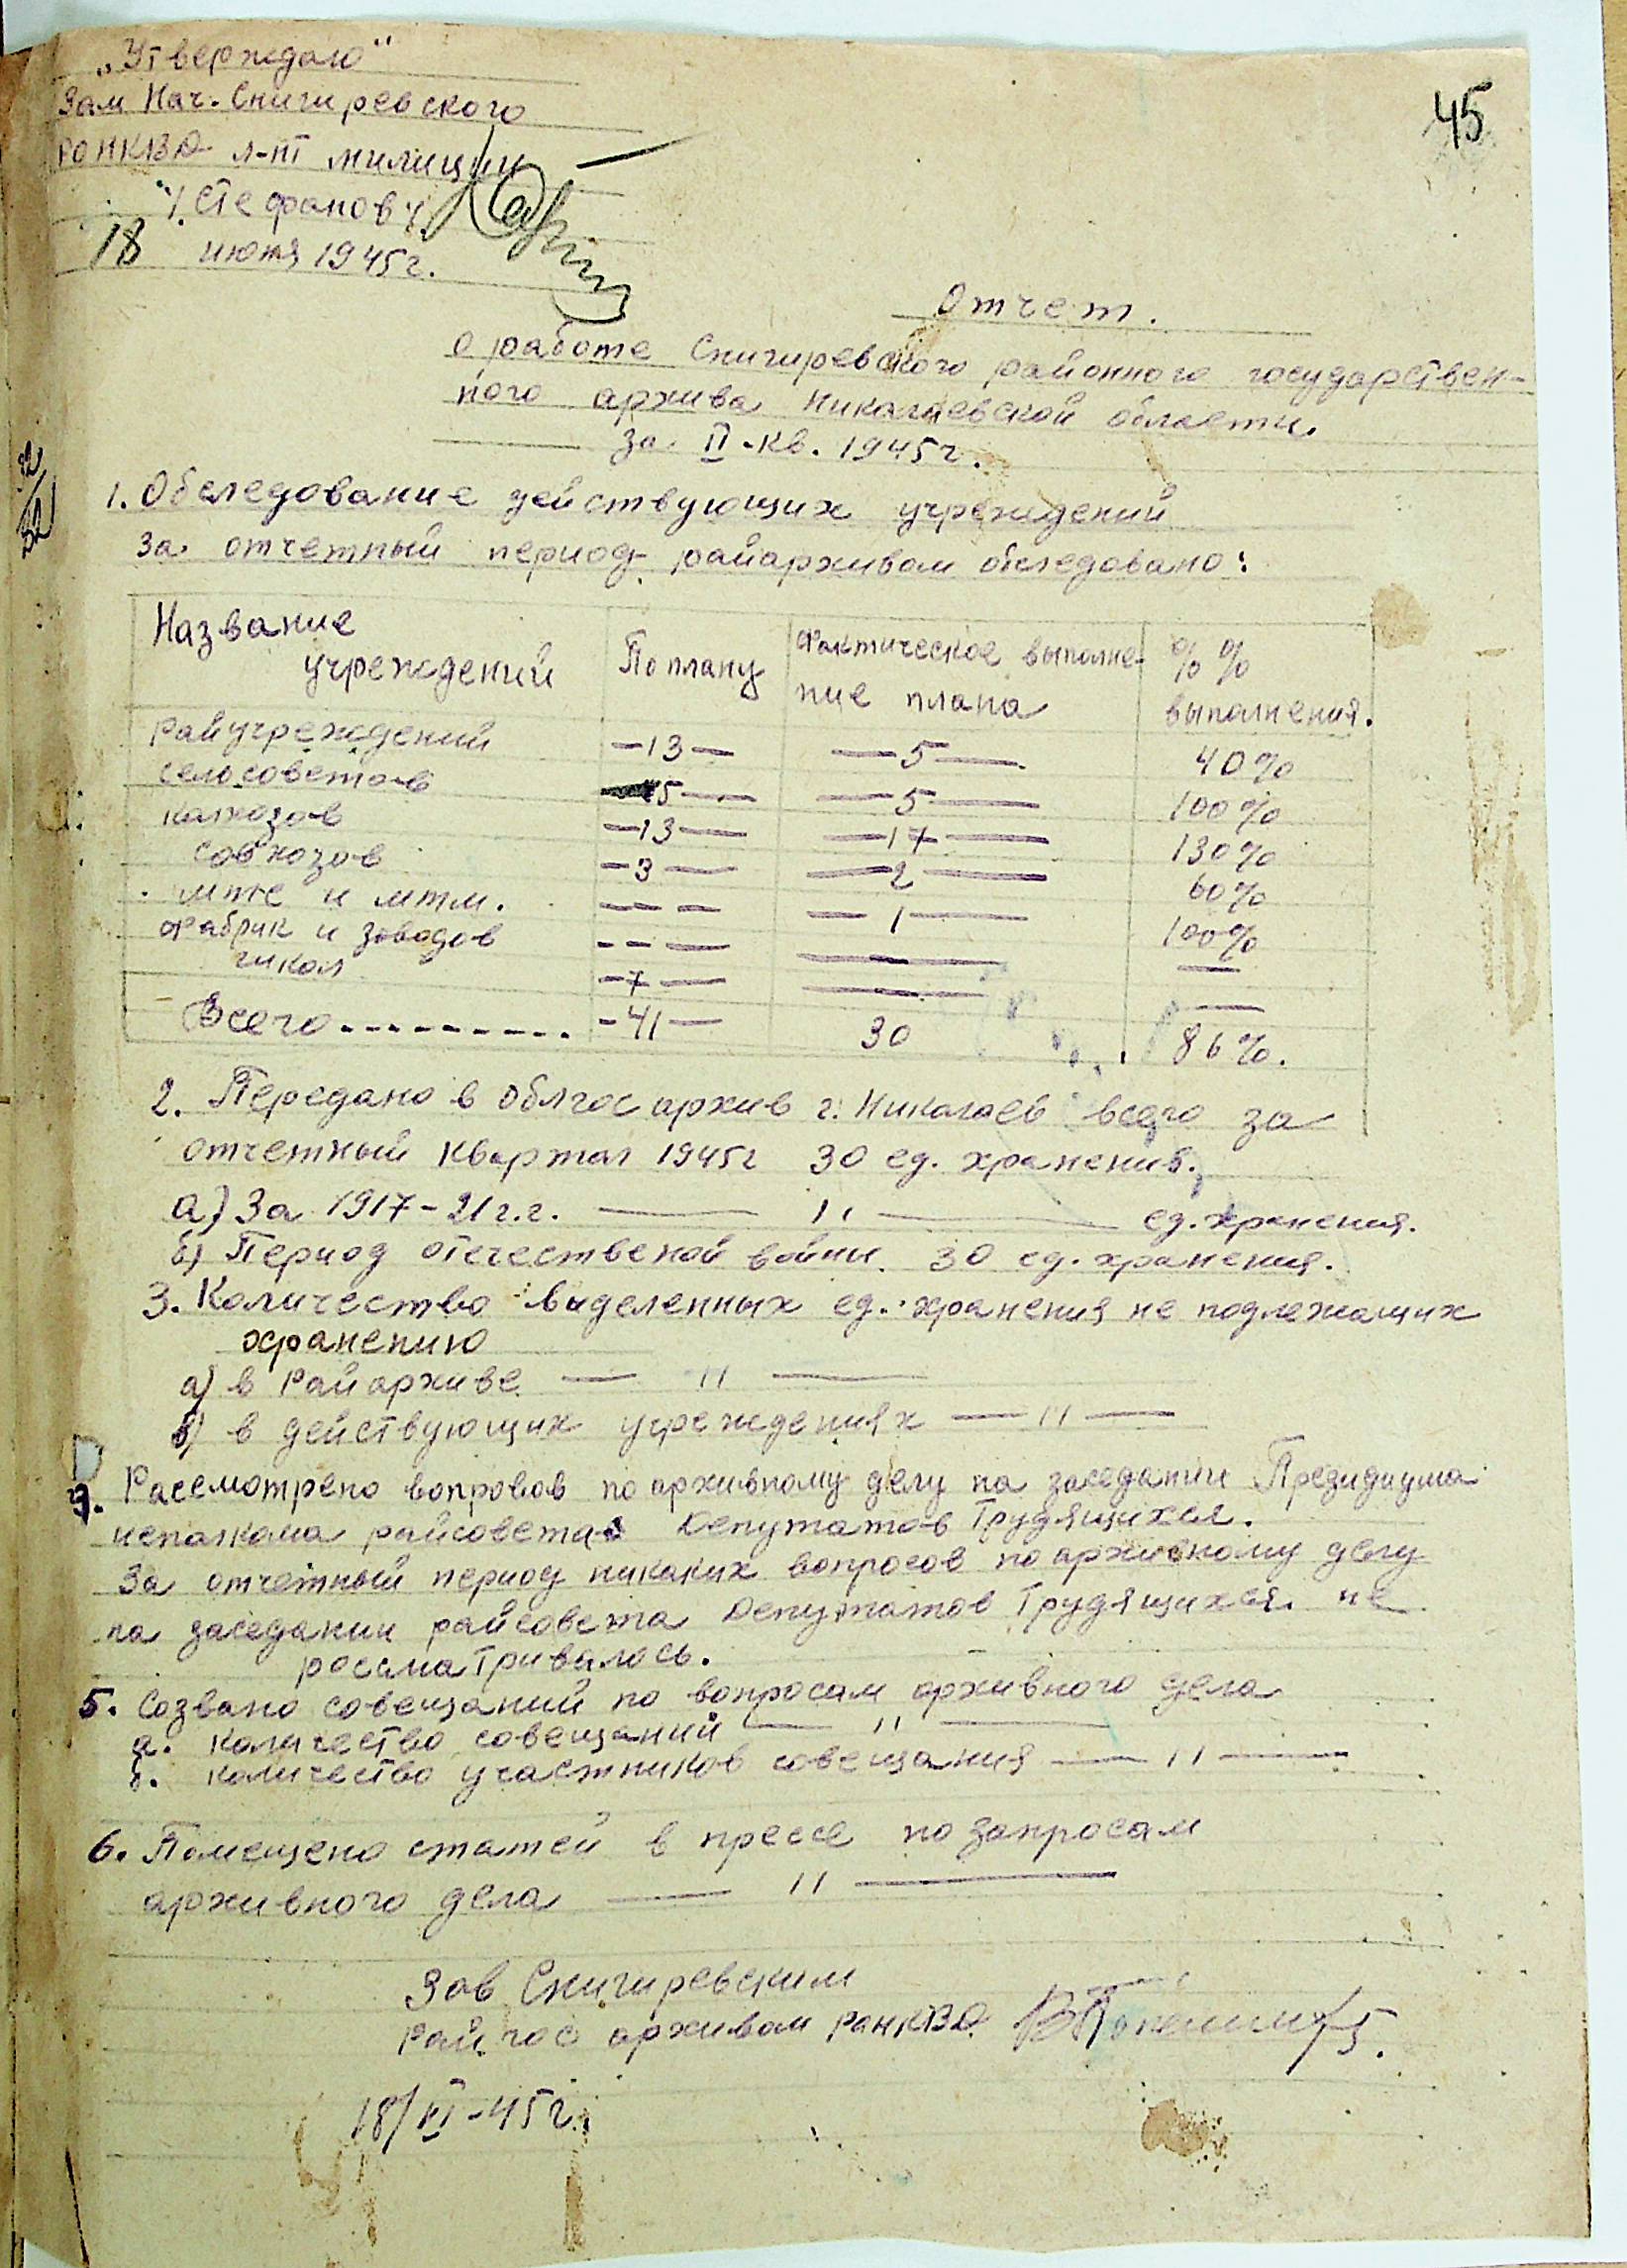 „Утверждаю"
Зам Нач. Снигиревского
РОНКВД л-нт милиции
/. Стефанов /.
18 июня 1945г.
45
Отчет.
о работе Снигиревского районного государствен-
ного архива Николаевской области
за II-кв. 1945г.
1. Обследование действующих учреждений
за отчетный период райархивом обследовано:
Название учреждений По плану Фактическое выполне-ние плана %% выполнения.
Райучреждений -13- -5- 40%
сельсоветов 5- -5- 100%
колхозов -13- -17- 130%
совхозов -3- -2- 60%
мтс и мтм. - - - -1- 100%
Фабрик и заводов - - - — —
школ -7- — —
Всего.......... -41- 30 86%.
2. Передано в Облгосархив г. Николаев всего за
отчетный квартал 1945г 30 ед. хранения.
а) За 1917-21г.г. — " — ед. хранения.
б) Период отечественой войны 30 ед. хранения.
3. Количество выделенных ед. хранения не подлежащих
хранению
а) в Райархиве — " —
б) в действующих учреждениях — " —
Рассмотрено вопросов по архивному делу на заседании Президиума
исполкома райсовета Депутатов Трудящихся.
За отчетный период никаких вопросов по архивному делу
на заседании райсовета Депутатов Трудящихся не
россматривалось.
5. Созвано совещаний по вопросам архивного дела
а. количество совещаний — " —
б. количество участников совещания — " —
6. Помещено статей в прессе по запросам
архивного дела — " —
Зав Снигиревским
Райгосархивом РОНКВД
18/VI-45г.